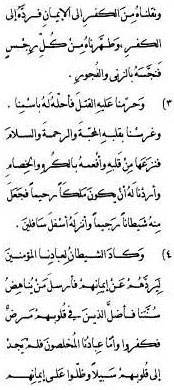 ونقلناه من الكفر إلى الإيمان فرده إلى
الكفر، وطهرناه من كل رجس
فنجسه بالزنى والفجور.
(٣) وحرمنا عليه القتل فأحله له باسمنا.
وغرسنا بقلبه المحبة والرحمة والسلام
فنزعها من قلبه وأفعمه بالكره والخصام
وأردنا له أن يكون ملكاً رحيماً فجعل
منه شيطاناً رجيماً وأنزله أسفل سافلين.
(٤) وكاد الشيطان لعبادنا المؤمنين
ليردهم عن إيمانهم فأرسل من يناهض
سنتنا فأضل الذين في قلوبهم مرض
فكفروا وأما عبادنا المخلصون فلم يجد
إلى قلوبهم سبيلاً وظلوا على إيمانهم